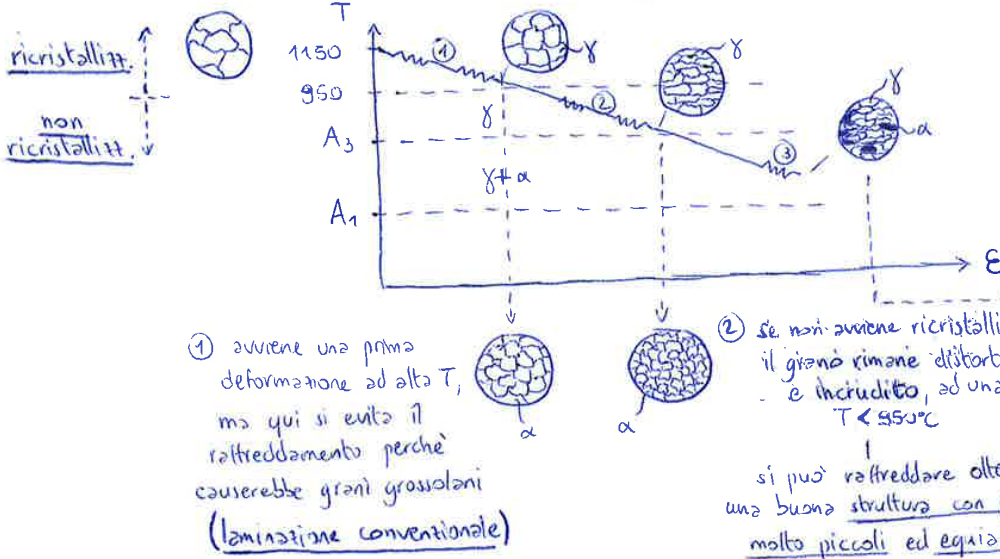 T
ricristallizz.
non
ricristallizz.
1150
950
A3
A1
①
②
③
γ
γ
γ
α
γ
γ+α
ε
α
α
① avviene una prima
deformazione ad alta T,
ma qui si evita il
raffreddamento perchè
causerebbe grani grossolani
(laminazione convenzionale)
② se non avviene ricristalli
il grano rimane distort
e incrudito, ad una
T < 950°C
si può raffreddare otte
una buona struttura con
molto piccoli ed equia